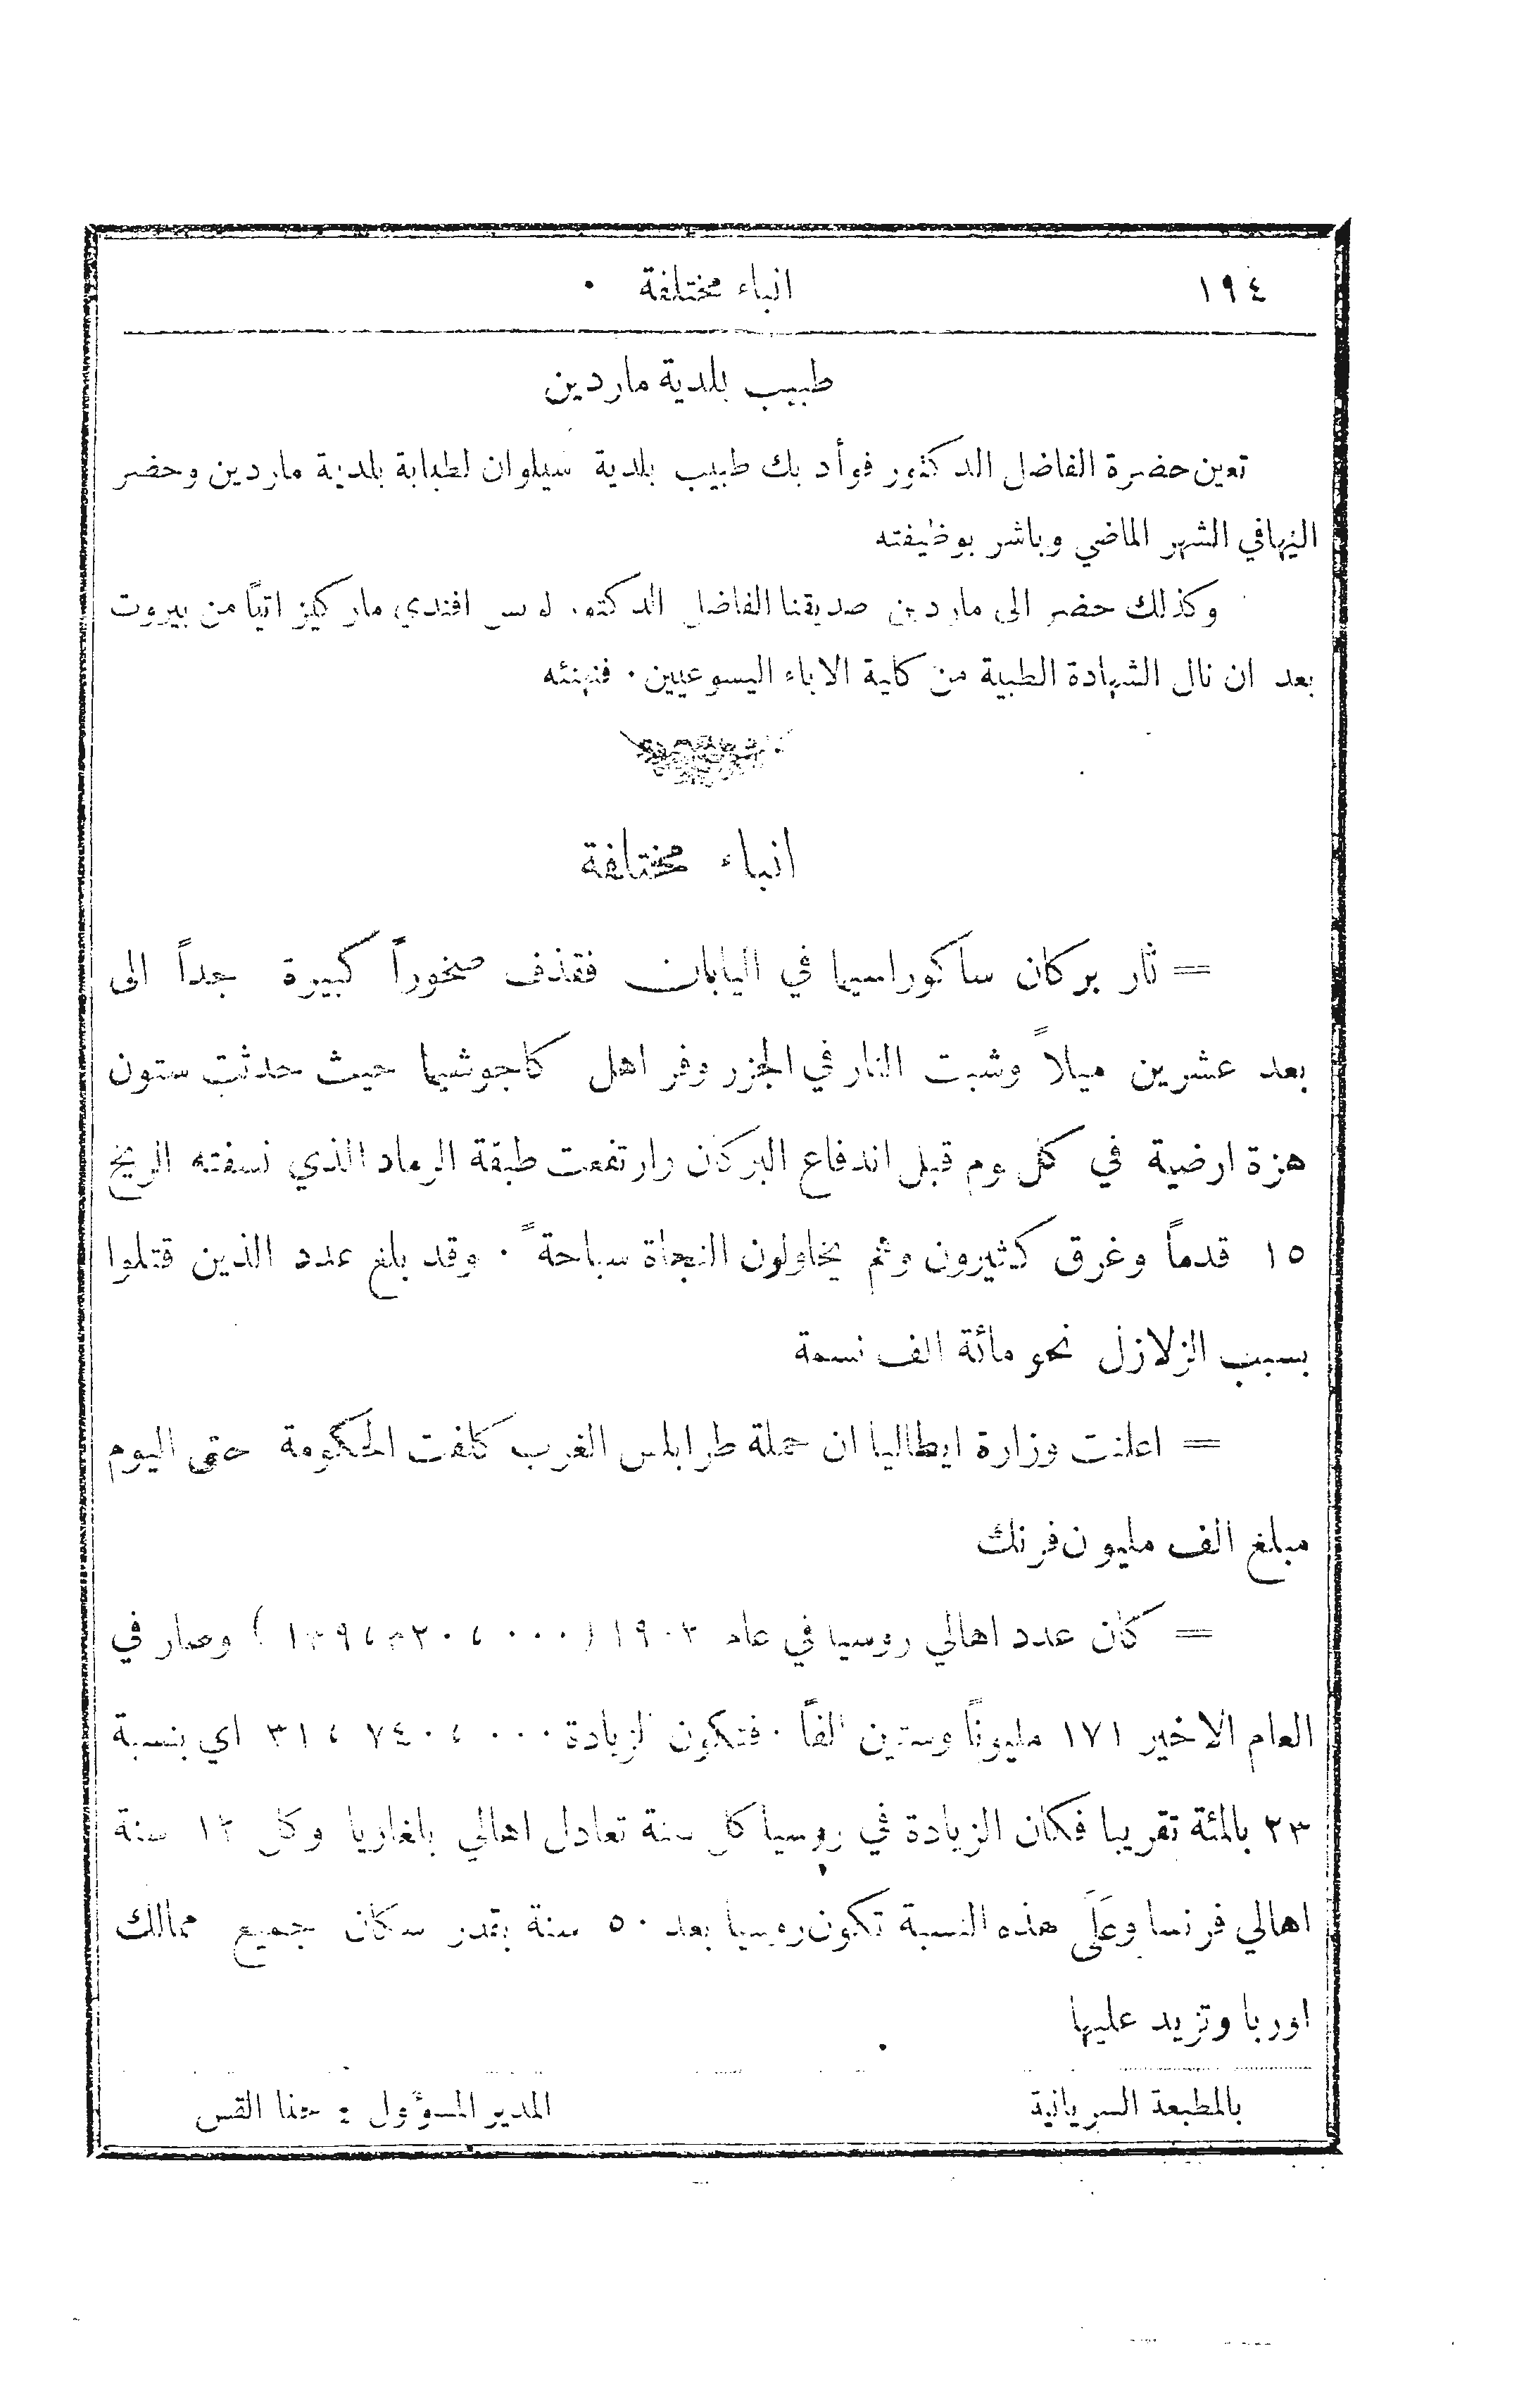 ١٩٤ انباء مختلفة ·
طبيب بلدية ماردين
تعين حضرة الفاضل الدكتور فوأد بك طبيب بلدية سيلوان لطبابة بلدية ماردين وحضر
اليها في الشهر الماضي وباشر بوظيفته
وكذلك حضر الى ماردين صديقنا الفاضل الدكتور افندي ماركيز اتياً من بيروت
بعد ان نال الشهادة الطبية من كلية الاباء اليسوعيين · فنهنئه
انباء مختلفة
= ثار بركان ساكوراسيما في اليابان فقذف صخوراً كبيرة جداً الى
بعد عشرين ميلاً وشبت النار في الجزر وفر اهل كاجوشيما حيث حدثت ستون
هزة ارضية في كل يوم قبل اندفاع البركان وارتفعت طبقة الرماد الذي نسفته الريح
١٥ قدماً وغرق كثيرون وثم يحاولون النجاة سباحةً · وقد بلغ عدد الذين قتلوا
بسبب الزلازل نحو مائة الف نسمة
= اعلنت وزارة ايطاليا ان حملة طرابلس الغرب كلفت الحكومة حتى اليوم
مبلغ الف مليون فرنك
= كان عدد اهالي روسيا في عام ١٩٠٣ ( ) وصار في
العام الاخير ١٧١ مليوناً وستين الفاً · فتكون الزيادة ٣١،٧٤٠،٠٠٠ اي بنسبة
٢٣ بالمئة تقريبا فكان الزيادة في روسيا كل سنة تعادل اهالي بلغاريا وكل سنة
اهالي فرنسا وعلى هذه النسبة تكون روسيا بعد ٥٠ سنة بقدر سكان جميع ممالك
اوربا وتزيد عليها
بالمطبعة السريانية المدير المسؤول : حنا القس